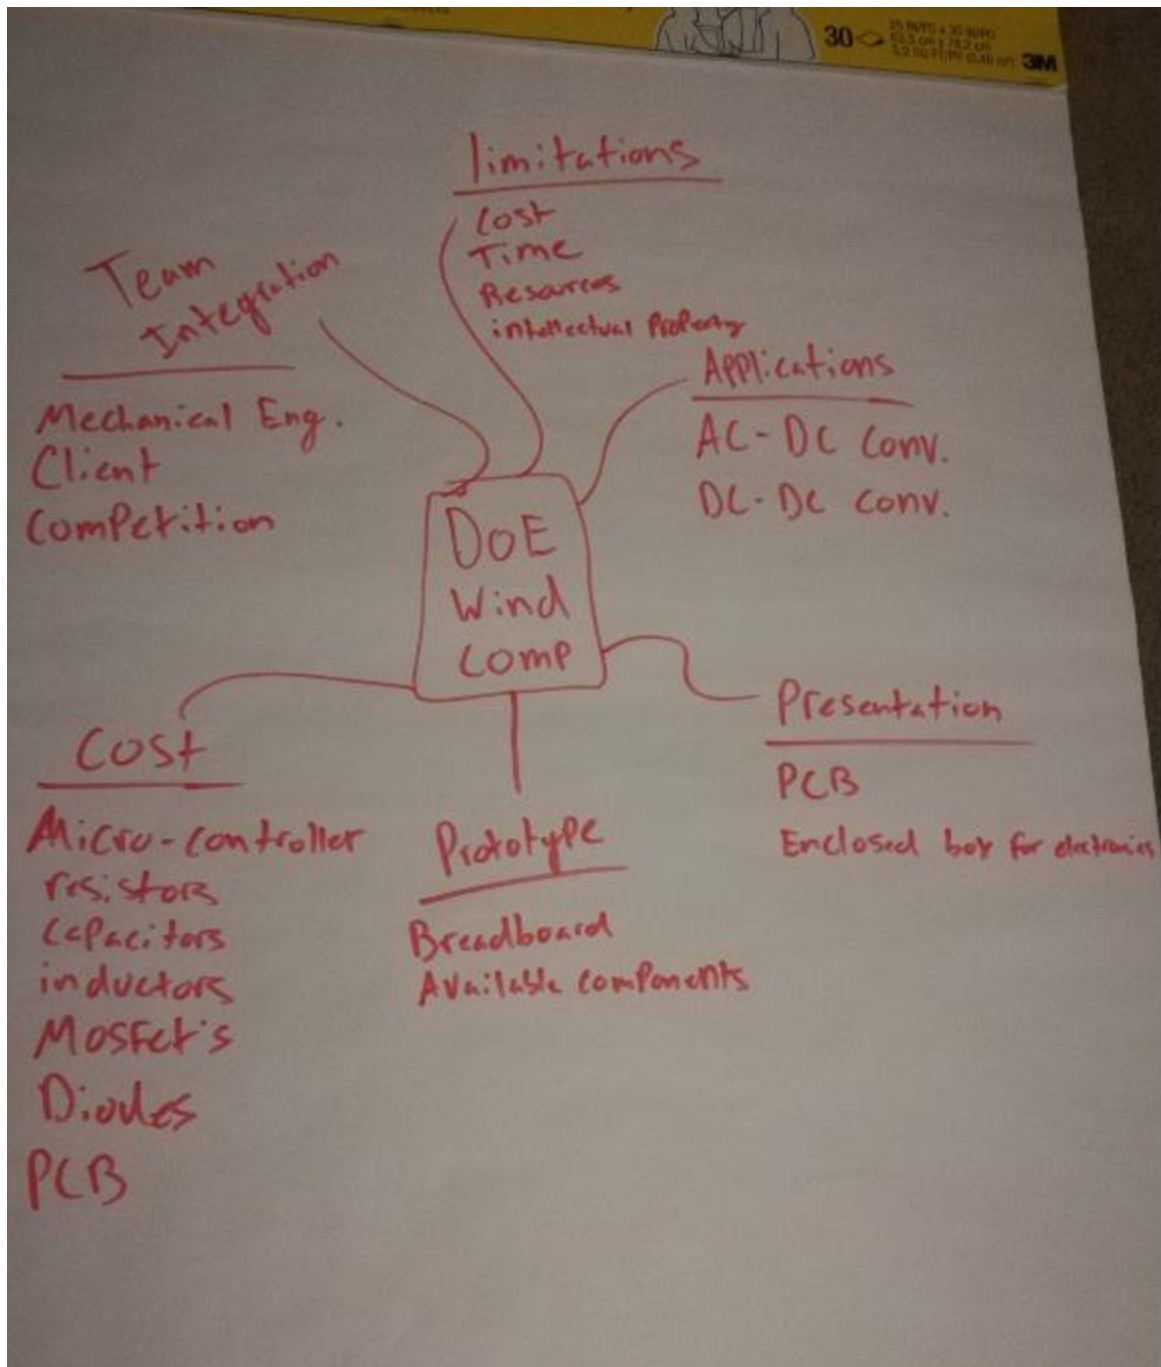 30
3M
limitations
Cost
Time
Resources
intellectual Property
Team
Integration
Mechanical Eng.
Client
Competition
Applications
AC-DC Conv.
DC-DC Conv.
DoE
Wind
Comp
Presentation
PCB
Enclosed box for electronics
Cost
Micro-controller
resistors
Capacitors
inductors
Mosfet's
Diodes
PCB
Prototype
Breadboard
Available components